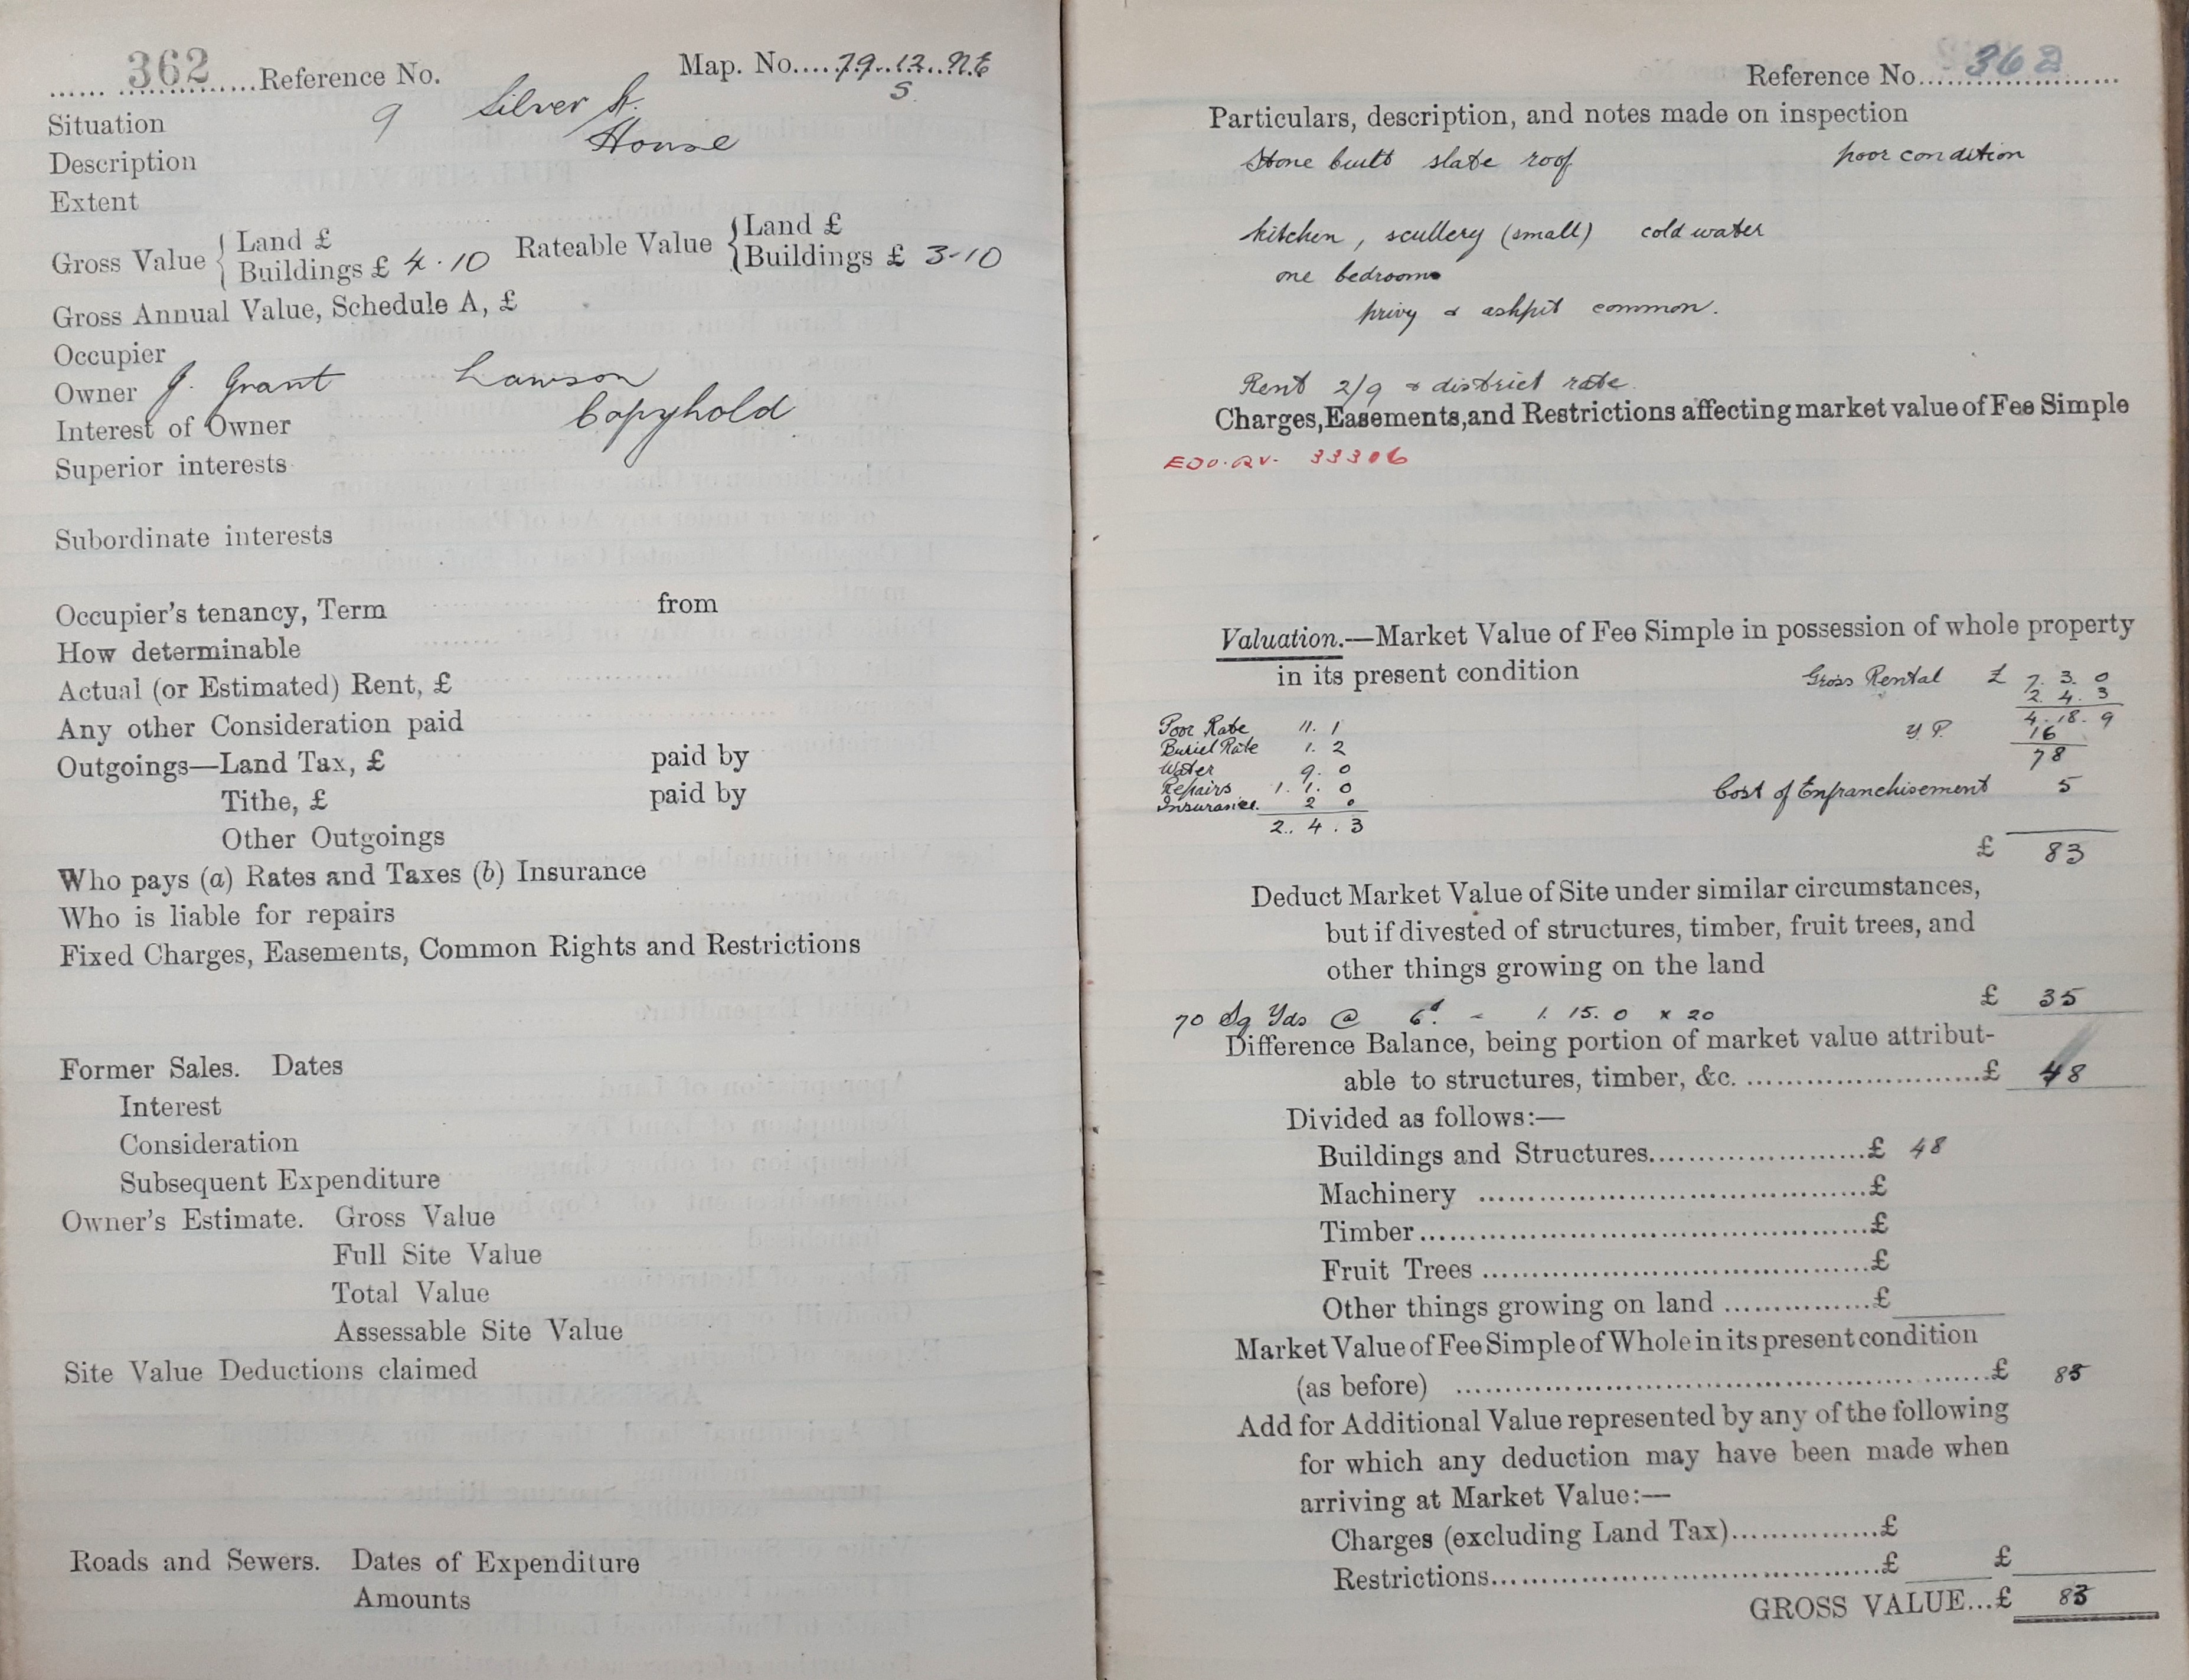 362 Reference No. Map. No. 79.12.NE
S.
Situation 9 Silver St.
Description House
Extent
Gross Value { Land £
Buildings £ 4.10
Rateable Value { Land £
Buildings £ 3-10
Gross Annual Value, Schedule A, £
Occupier
Owner J. Grant Lawson
Interest of Owner Copyhold
Superior interests
Subordinate interests
Occupier's tenancy, Term from
How determinable
Actual (or Estimated) Rent, £
Any other Consideration paid
Outgoings—Land Tax, £ paid by
Tithe, £ paid by
Other Outgoings
Who pays (a) Rates and Taxes (b) Insurance
Who is liable for repairs
Fixed Charges, Easements, Common Rights and Restrictions
Former Sales. Dates
Interest
Consideration
Subsequent Expenditure
Owner's Estimate. Gross Value
Full Site Value
Total Value
Assessable Site Value
Site Value Deductions claimed
Roads and Sewers. Dates of Expenditure
Amounts
Reference No. 362
Particulars, description, and notes made on inspection
Stone built slate roof poor condition
kitchen, scullery (small) cold water
one bedroom
privy & ashpit common.
Rent 2/9 & district rate.
Charges, Easements, and Restrictions affecting market value of Fee Simple
33306
Valuation.—Market Value of Fee Simple in possession of whole property
in its present condition
Gross Rental £ 7. 3. 0
2. 4. 3
4. 18. 9
Y P. 16
78
Poor Rate 11. 1
Burial Rate 1. 2
Water 9. 0
Repairs 1. 1. 0
Insurance. 2 0
2. 4. 3
Cost of Enfranchisement 5
£ 83
Deduct Market Value of Site under similar circumstances,
but if divested of structures, timber, fruit trees, and
other things growing on the land
£ 35
70 Sq Yds @ 6d. = 1. 15. 0 x 20
Difference Balance, being portion of market value attribut-
able to structures, timber, &c. £ 48
Divided as follows:—
Buildings and Structures £ 48
Machinery £
Timber £
Fruit Trees £
Other things growing on land £
Market Value of Fee Simple of Whole in its present condition
(as before) £ 83
Add for Additional Value represented by any of the following
for which any deduction may have been made when
arriving at Market Value:—
Charges (excluding Land Tax) £
Restrictions £ £
GROSS VALUE... £ 83